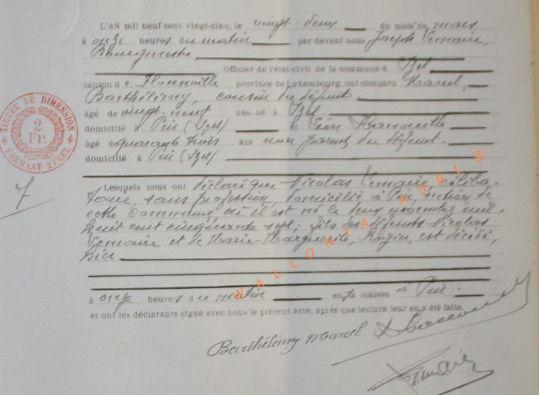 L'AN mil neuf cent vingt-cinq, le vingt-deux du mois de mars
à onze heures du matin par devant nous Joseph Lemaire,
Bourgmestre
Officier de l'état-civil de la commune d
canton de Florenville province de Luxembourg, ont comparu Marcel
Barthélémy, cousin du défunt
âgé de vingt neuf ans, né à Izel
domicilié à Pin (Izel) & Léon
âgé de quarante trois ans non parent du défunt.
domicilié à Pin (Izel)
Lesquels nous ont déclaré que Nicolas Lemaire, céliba-
taire, sans profession, domicilié à Pin, section de
cette commune, où il est né le deux novembre mil
huit cent cinquante sept, fils des défunts Nicolas
Lemaire et de Marie-Marguerite, est décédé,
hier
à onze heures du matin en sa maison à Pin.
et ont les déclarants signé avec nous le présent acte, après que lecture leur en a été faite.
Barthélémy Marcel
Lemaire
TIMBRE DE DIMENSION
2
FR.
WALLONIA